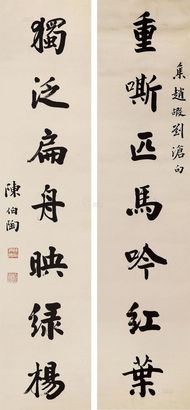 重嘶匹馬吟紅葉
集趙嘏劉滄句
獨泛扁舟映绿楊
陳伯陶